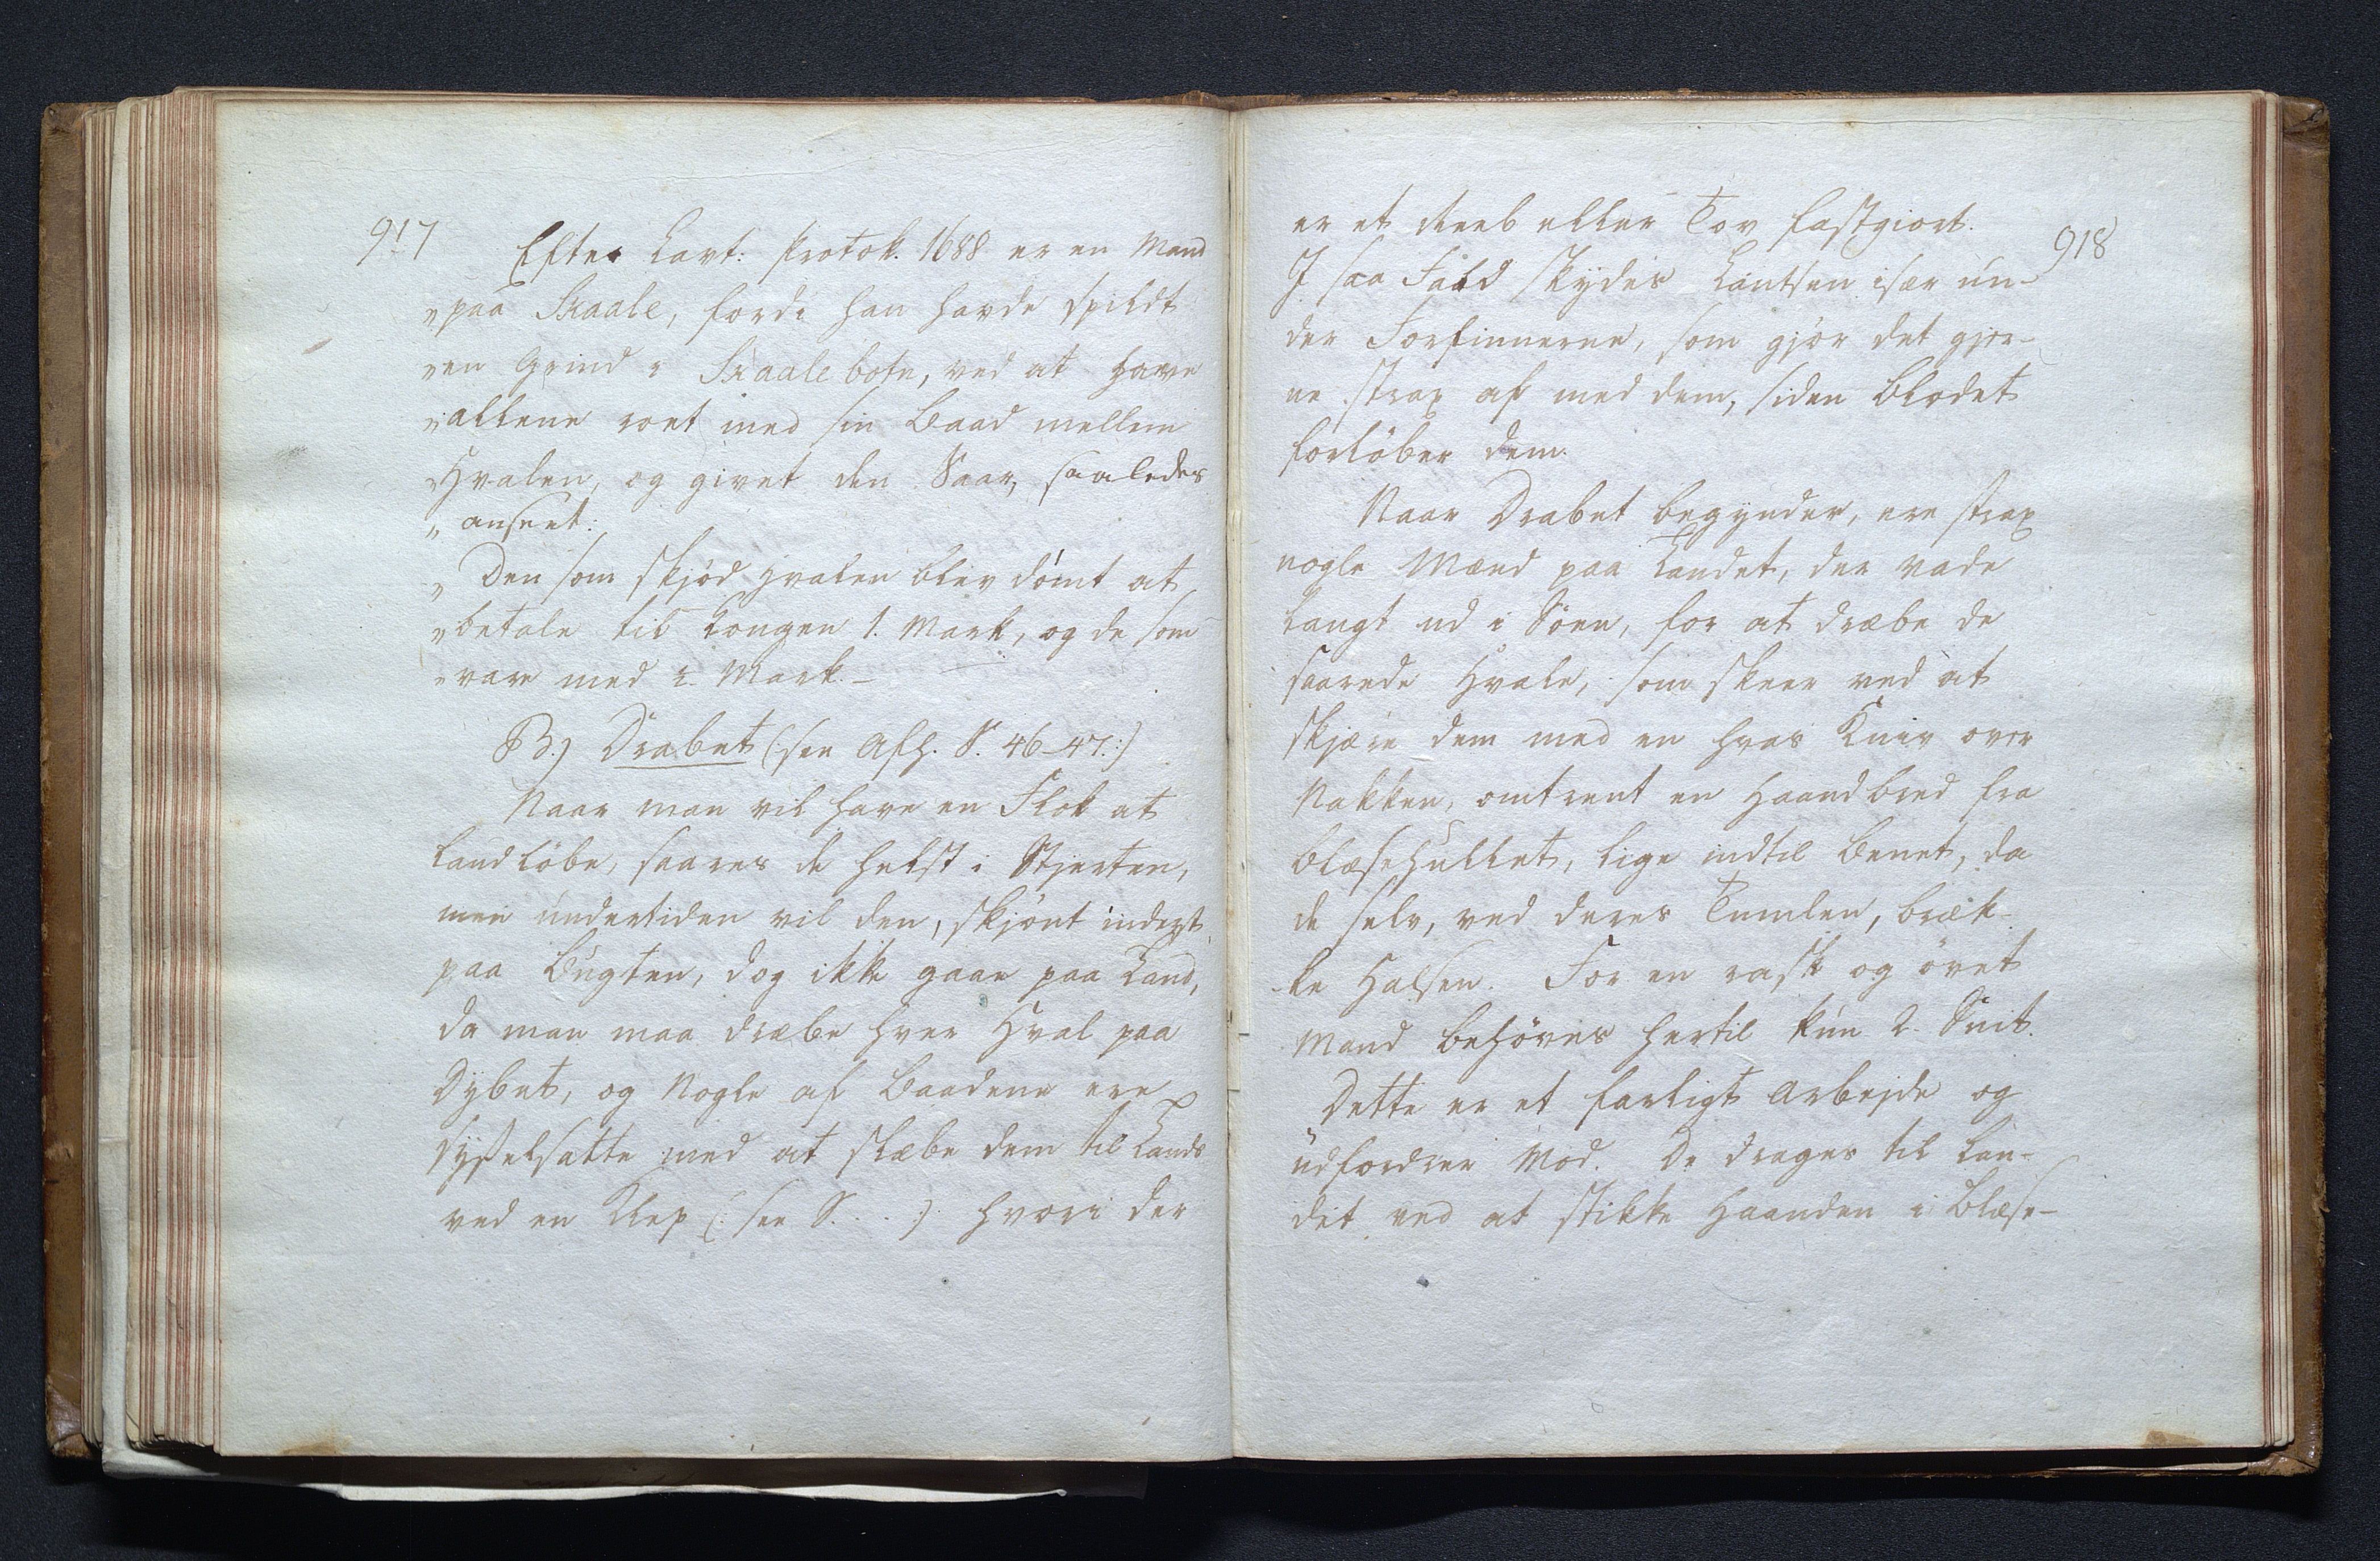 917
Efter Lavt: Protok. 1688 er en Mand
„paa Skaale, fordi han havde spildt
„en Grind i Skaalebotn, ved at have
„allene roet med sin Baad mellem
„Hvalen, og givet den Saar, saaledes
„anseet:
„Den som skjød Hvalen blev dömt at
„betale til Kongen 1. Mark, og de som
„vare med ½ Mark. –
B.) Drabet (: see Afh. S. 46–47. :)
Naar man vil have en Flok at
landlöbe, saares de helst i Stjerten,
men undertiden vil den, skjönt inderst
paa Bugten, dog ikke gaae paa Land,
da man maa dræbe hver Hval paa
Dybet, og Nogle af Baadene ere
sysselsatte med at slæbe dem til Lands
ved en Klep (: see S. . . :) hvori der
918
er et Reeb eller Tov fastgiort.
I saa Fald skydes Lantsen især un-
der Forfinnerne, som gjör det gjer-
ne strax af med dem, siden Blodet
forlöber dem.
Naar Drabet begynder, ere strax
nogle Mænd paa Landet, der vade
langt ud i Söen, for at dræbe de
saarede Hvale, som skeer ved at
skjære dem med en hvas Kniv over
Nakken, omtrent en Haandbred fra
Blæsehullet, lige indtil Benet, da
de selv, ved deres Tumlen, bræk-
ke Halsen. For en rask og övet
Mand behöves hertil kun 2. Snit.
Dette er et farligt Arbejde og
udfordrer Mod. De drages til Lan-
det ved at stikke Haanden i Blæse-